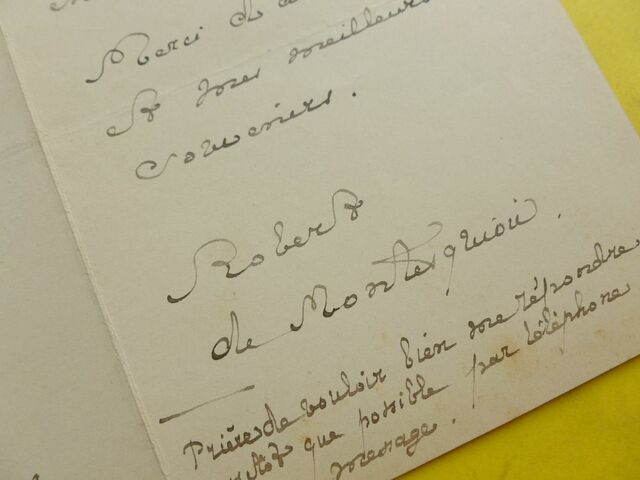 Merci de
Et mes meilleurs
souvenirs.
Robert
de Montesquiou.
Prière de vouloir bien me répondre
que possible par téléphone
message.